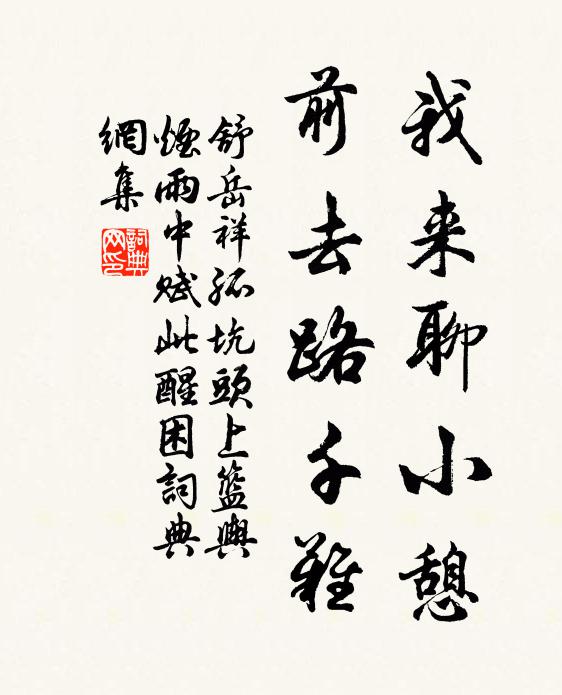 我来聊小憩
前去路千難
舒岳祥孤坑頭上籃輿
煙雨中賦此醒困詞典
網集
詞典网印